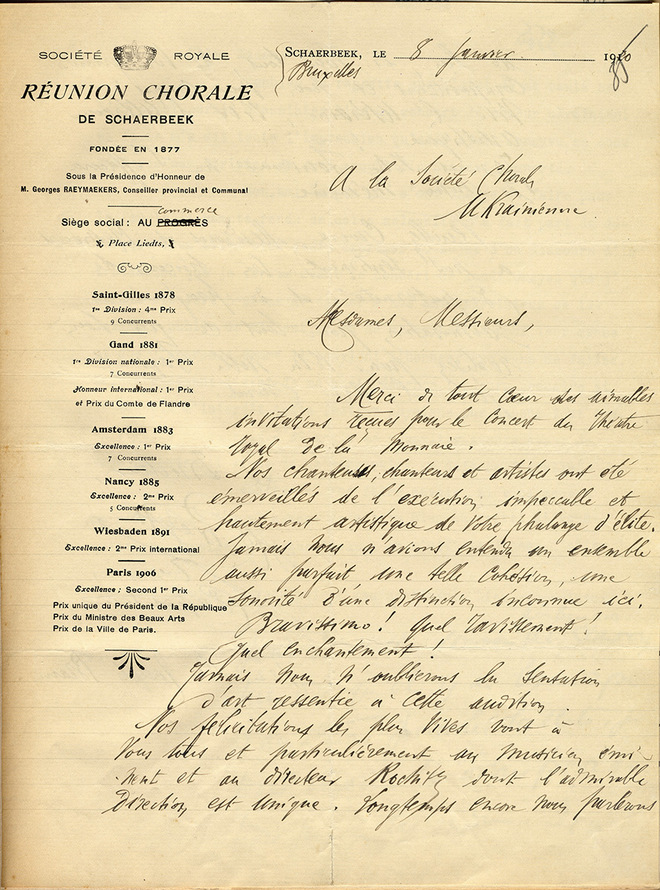 SOCIÉTÉ ROYALE
RÉUNION CHORALE
DE SCHAERBEEK
FONDÉE EN 1877
Sous la Présidence d'Honneur de
M. Georges RAEYMAEKERS, Conseiller provincial et Communal
commerce
Siège social : AU PROGRÈS
Place Liedts,
Saint-Gilles 1878
1re Division : 4me Prix
9 Concurrents
Gand 1881
1re Division nationale : 1er Prix
7 Concurrents
Honneur international : 1er Prix
et Prix du Comte de Flandre
Amsterdam 1883
Excellence : 1er Prix
7 Concurrents
Nancy 1885
Excellence : 2me Prix
5 Concurrents
Wiesbaden 1891
Excellence : 2me Prix international
Paris 1906
Excellence : Second 1er Prix
Prix unique du Président de la République
Prix du Ministre des Beaux Arts
Prix de la Ville de Paris.
SCHAERBEEK, LE 8 Janvier 19
Bruxelles
A la Société Chorale
Ukrainienne
Mesdames, Messieurs,
Merci de tout cœur des aimables
invitations reçues pour le Concert du Théâtre
Royal de la Monnaie.
Nos chanteuses, chanteurs et artistes ont été
émerveillés de l'exécution impeccable et
hautement artistique de votre phalange d'élite.
Jamais nous n'avions entendu un ensemble
aussi parfait une telle Cohésion, une
Sonorité d'une distinction inconnue ici.
Bravissimo! Quel ravissement!
Quel enchantement!
Jamais nous n'oublierons la Sensation
d'art ressentie à cette audition.
Nos félicitations les plus vives vont à
Vous tous et particulièrement au musicien émi-
nent et au directeur dont l'admirable
Direction est unique. Longtemps encore nous parlerons